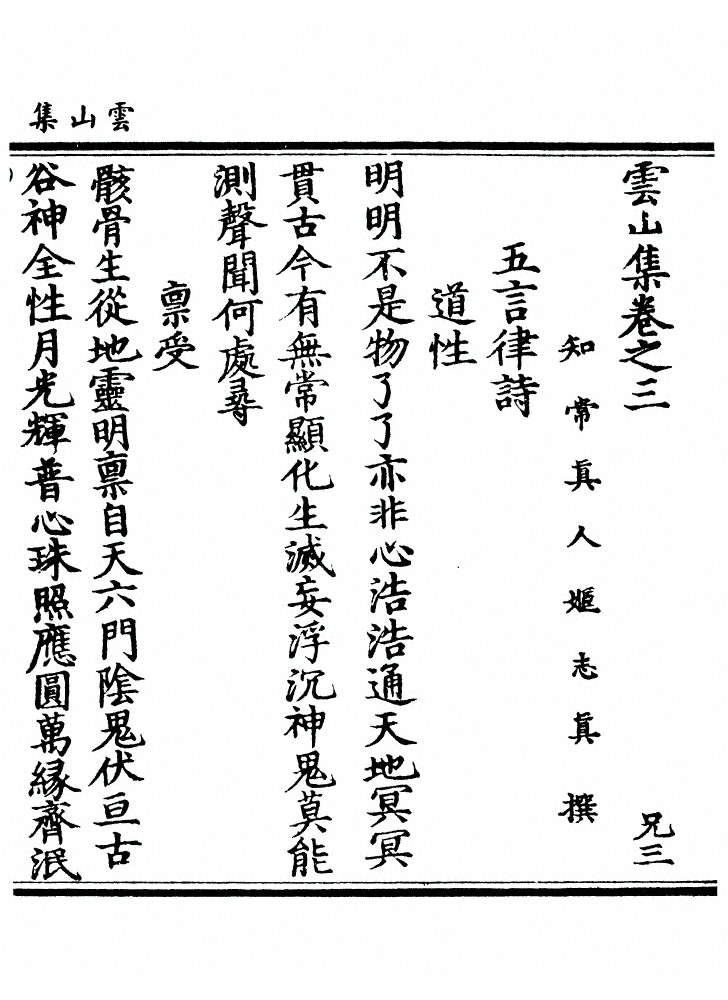 雲山集
雲山集卷之三
兄三
知常眞人姬志眞撰
五言律詩
道性
明明不是物了了亦非心浩浩通天地冥冥
貫古今有無常顯化生滅妄浮沉神鬼莫能
測聲聞何處尋
禀受
骸骨生從地靈明禀自天六門陰鬼伏亘古
谷神全性月光輝普心珠照應圓萬緣齊泯